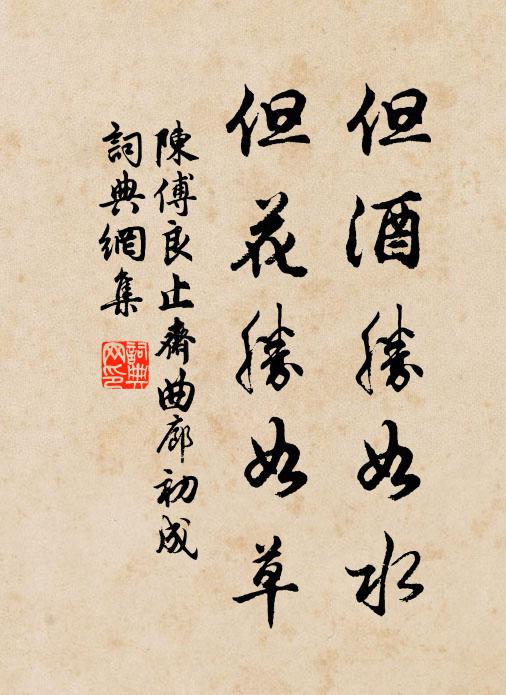 但酒勝如水
但花勝如草
陳傅良止齋曲廊初成
詞典網集
詞典網印